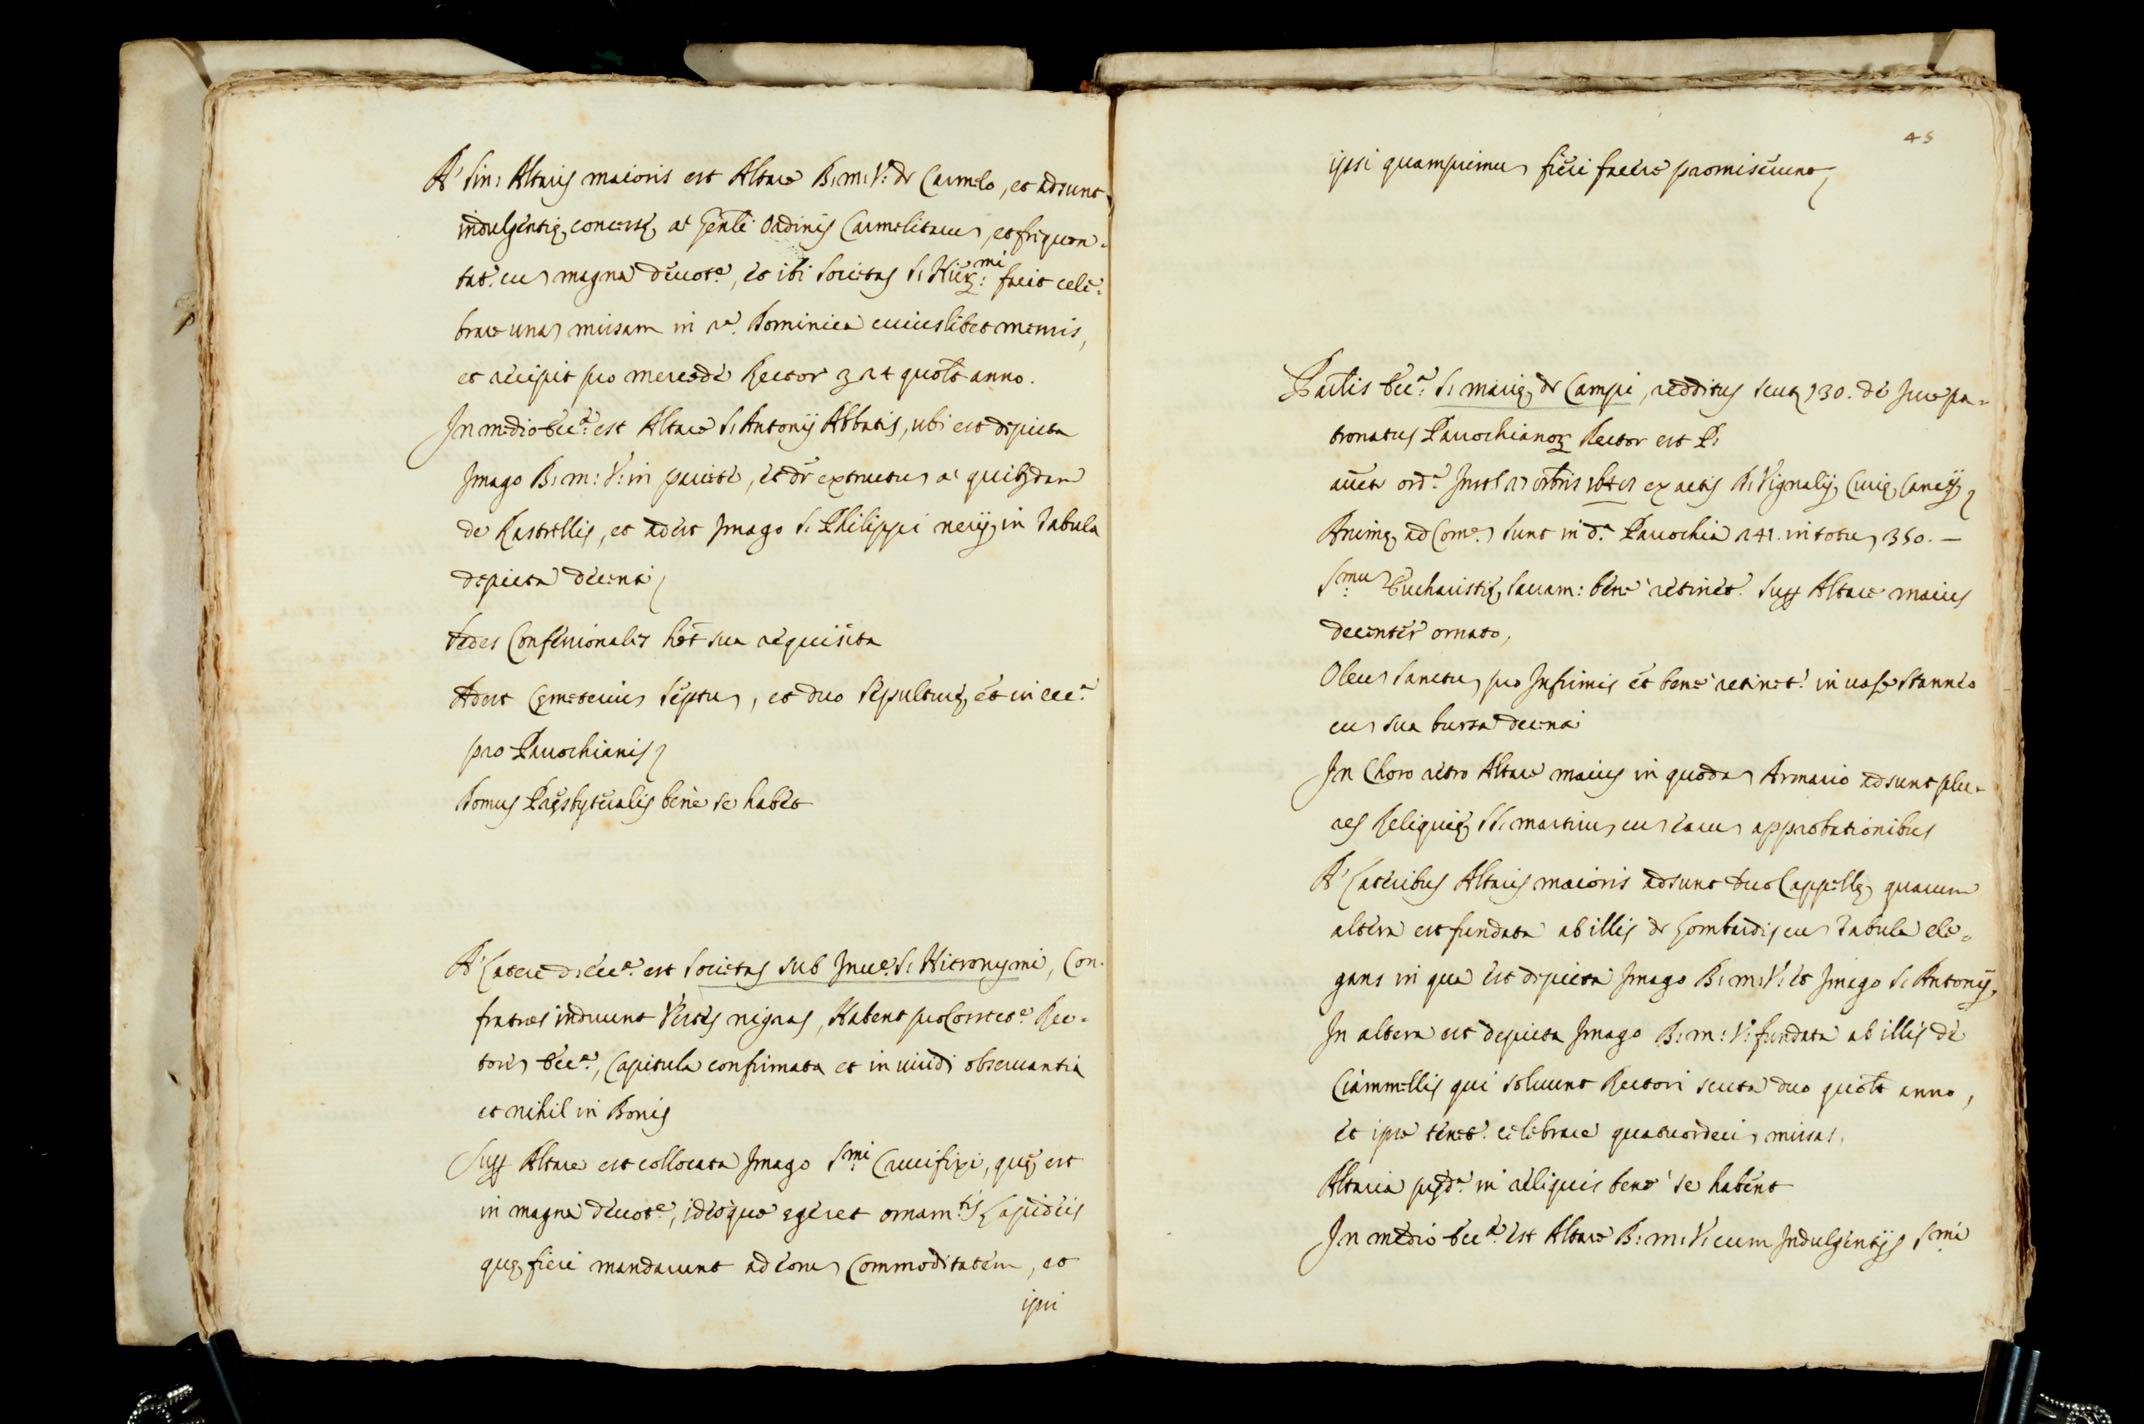 A' Sin: Altaris maioris est Altare B: m: V: de Carmelo, et adsunt
indulgentię concessę a' Gen̄li Ordinis Carmelitarū, et frequen-
tat:r cū magna deuot:e, et ibi Societas S: Hier:mi facit cele-
brare unā missam in 2.a Dominica cuiuslibet mensis,
et recipit pro mercede Rector quol̄t anno.
In medio Ecc:e est Altare S: Antonij Abbatis, ubi est depicta
Imago B: m: V: in pariete, et dr̄ extructū a' quibusdam
de Rastellis, et adest Imago S: Philippi nerij in tabula
depicta decenti
Sedes Confessionalis hēt sua requisita
Adest Cęmeteriū septū, et duo sepulturę ēt in ecc:a
pro Parochianis
Domus Pręsbyteralis bene se habet
A' Latere d: ecc:e est Societas sub Inue S: Hieronymi, Con-
fratres induunt Vestes nigras, Habent pro Correct:e Rec-
torē Ecc:e, Capitula confirmata et in uiridi obseruantia
et nihil in Bonis
Supr Altare est collocata Imago S:mi Crucifixi, quę est
in magna deuot:e, ideoque egeret ornam:tis Lapideis
quę fieri mandarunt ad eorū Commoditatem, et
ipsi
45
ipsi quamprimū fieri facere promiserunt
Parl̄is Ecc:a S: Marię de Campi, redditus scut 130. de Jure pa-
tronatus Parochianoꝝ Rector est P:
auct:e ord:a ex actis R: Vignalij Curię
Animę ad Com:e sunt in d:a Parochia 241. in totū 350. —
S:mū Eucharistię Sacram: bene retinet:r Supr Altare maius
decenter ornato,
Oleū Sanctū pro Infirmis ēt bene retinet:r in uase stanneo
cū sua bursa decenti
In Choro retro Altare maius in quodā Armario adsunt plu-
res Reliquię SS: martirū cū earū approbationibus
A' Lateribus Altaris maioris adsunt duo Cappellę quarum
altera est fundata ab illis de Lombardis cū tabula ele-
gans in qua est depicta Imago B: m: V: et Imago S: Antonij,
In altera est depicta Imago B: m: V: fundata ab illis de
Ciammellis qui soluunt Rectori scuta duo quol̄t anno,
et ipse tenet:r celebrare quatuordeci missas.
Altaria pręd:a in reliquis bene se habent
In medio Ecc:e est Altare B: m: V: cum Indulgentijs S:mi